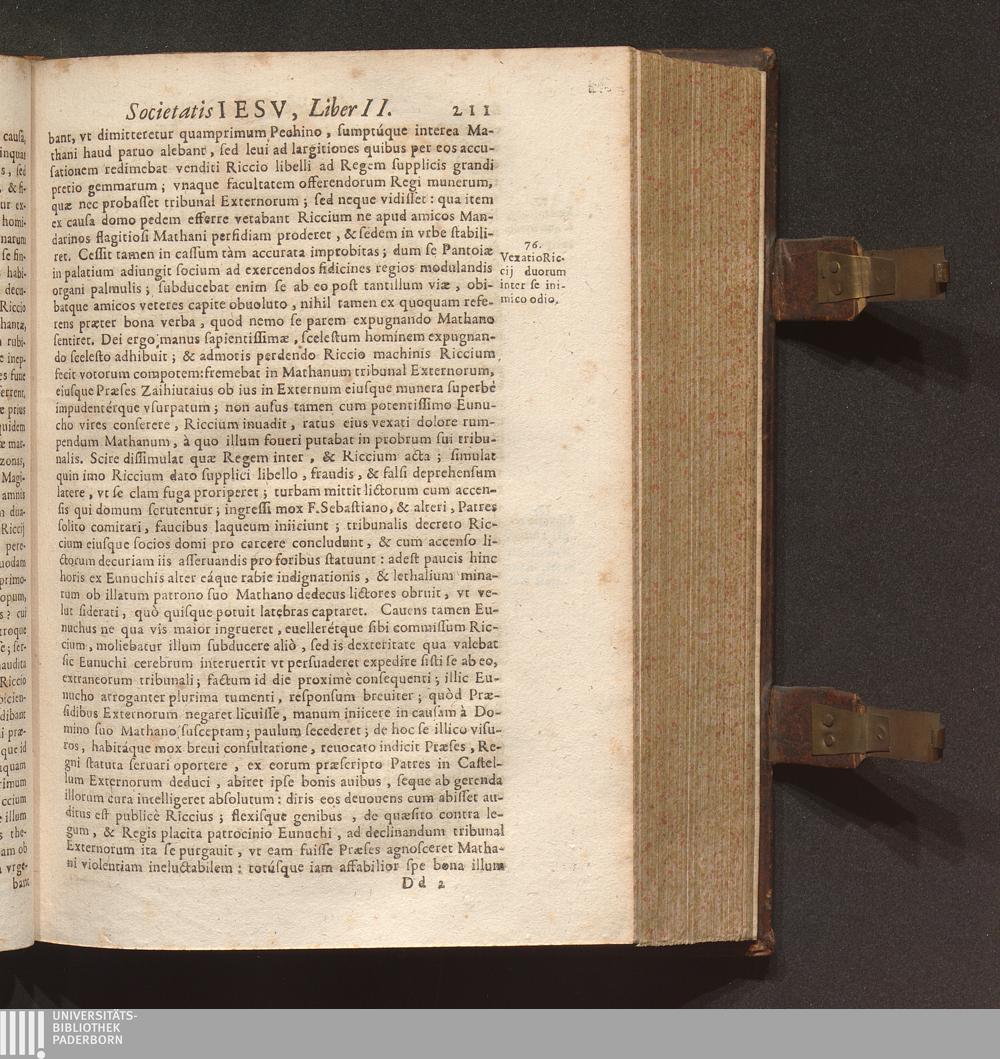 Societatis IESV, Liber II. 211
bant, vt dimitteretur quamprimum Pechino, sumptúque interea Ma-
thani haud paruo alebant, sed leui ad largitiones quibus per eos accu-
sationem redimebat venditi Riccio libelli ad Regem supplicis grandi
pretio gemmarum; vnaque facultatem offerendorum Regi munerum,
quæ nec probasset tribunal Externorum; sed neque vidisset: qua item
ex causa domo pedem efferre vetabant Riccium ne apud amicos Man-
darinos flagitiosi Mathani perfidiam proderet, & sedem in vrbe stabili-
ret. Cessit tamen in cassum tàm accurata improbitas; dum se Pantoiæ
in palatium adiungit socium ad exercendos fidicines regios modulandis
organi palmulis; subducebat enim se ab eo post tantillum viæ, obi-
batque amicos veteres capite obuoluto, nihil tamen ex quoquam refe-
rens præter bona verba, quod nemo se parem expugnando Mathano
sentiret. Dei ergo manus sapientissimæ, scelestum hominem expugnan-
do scelesto adhibuit; & admotis perdendo Riccio machinis Riccium
fecit votorum compotem: fremebat in Mathanum tribunal Externorum,
eiusque Præses Zaihiutaius ob ius in Externum eiusque munera superbè
impudentérque vsurpatum; non ausus tamen cum potentissimo Eunu-
cho vires conserere, Riccium inuadit, ratus eius vexati dolore rum-
pendum Mathanum, à quo illum foueri putabat in probrum sui tribu-
nalis. Scire dissimulat quæ Regem inter, & Riccium acta; simulat
quin imo Riccium dato supplici libello, fraudis, & falsi deprehensum
latere, vt se clam fuga proriperet; turbam mittit lictorum cum accen-
sis qui domum scrutentur; ingressi mox F. Sebastiano, & alteri, Patres
solito comitari, faucibus laqueum iniiciunt; tribunalis decreto Ric-
cium eiusque socios domi pro carcere concludunt, & cum accenso li-
ctorum decuriam iis asseruandis pro foribus statuunt: adest paucis hinc
horis ex Eunuchis alter eáque rabie indignationis, & lethalium mina-
rum ob illatum patrono suo Mathano dedecus lictores obruit, vt ve-
lut siderati, quò quisque potuit latebras captaret. Cauens tamen Eu-
nuchus ne qua vis maior ingrueret, euellerétque sibi commissum Ric-
cium, moliebatur illum subducere aliò, sed is dexteritate qua valebat
sic Eunuchi cerebrum interuertit vt persuaderet expedire sisti se ab eo,
extraneorum tribunali; factum id die proximè consequenti; illic Eu-
nucho arroganter plurima tumenti, responsum breuiter; quòd Præ-
sidibus Externorum negaret licuisse, manum iniicere in causam à Do-
mino suo Mathano susceptam; paulum secederet; de hoc se illico visu-
ros, habitáque mox breui consultatione, reuocato indicit Præses, Re-
gni statuta seruari oportere, ex eorum præscripto Patres in Castel-
lum Externorum deduci, abiret ipse bonis auibus, seque ab gerenda
illorum cura intelligeret absolutum: diris eos deuouens cum abisset au-
ditus est publicè Riccius; flexisque genibus, de quæsito contra le-
gum, & Regis placita patrocinio Eunuchi, ad declinandum tribunal
Externorum ita se purgauit, vt eam fuisse Præses agnosceret Matha-
ni violentiam ineluctabilem: totúsque iam affabilior spe bona illum
Dd 2
76.
Vexatio Ric-
cij duorum
inter se ini-
mico odio.
causa,
s, sed
& fi-
tur ex-
homi-
narum
se fin-
habi-
decu-
Riccio
rubi-
e inep-
æ prius
quidem
æ mat-
zonis,
Magi-
amnis
m dua-
Riccij
pere-
uodam
primo-
opum,
s? cui
troque
e; ser-
audita
Riccio
oicien-
dibant
i præ-
que id
quam
rimum
ccium
illum
s the-
am ob
vrge-
bant
UNIVERSITÄTS-
BIBLIOTHEK
PADERBORN